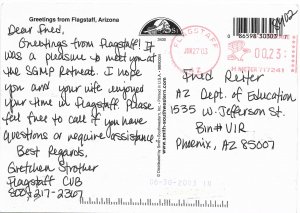 Greetings from Flagstaff, Arizona
Dear Fred,
Greetings from Flagstaff! It
was a pleasure to meet you at
the SGMP Retreat. I hope
you and your wife enjoyed
your time in Flagstaff. Please
feel free to call if you have
questions or require assistance.
Best Regards,
Gretchen Strother
Flagstaff CVB
800-217-2367
FLAGSTAFF
JUN 27 03
00.23
Fred Reiter
AZ Dept. of Education
1535 W. Jefferson St.
Bin # VIR
Phoenix, AZ 85007
06-30-2003